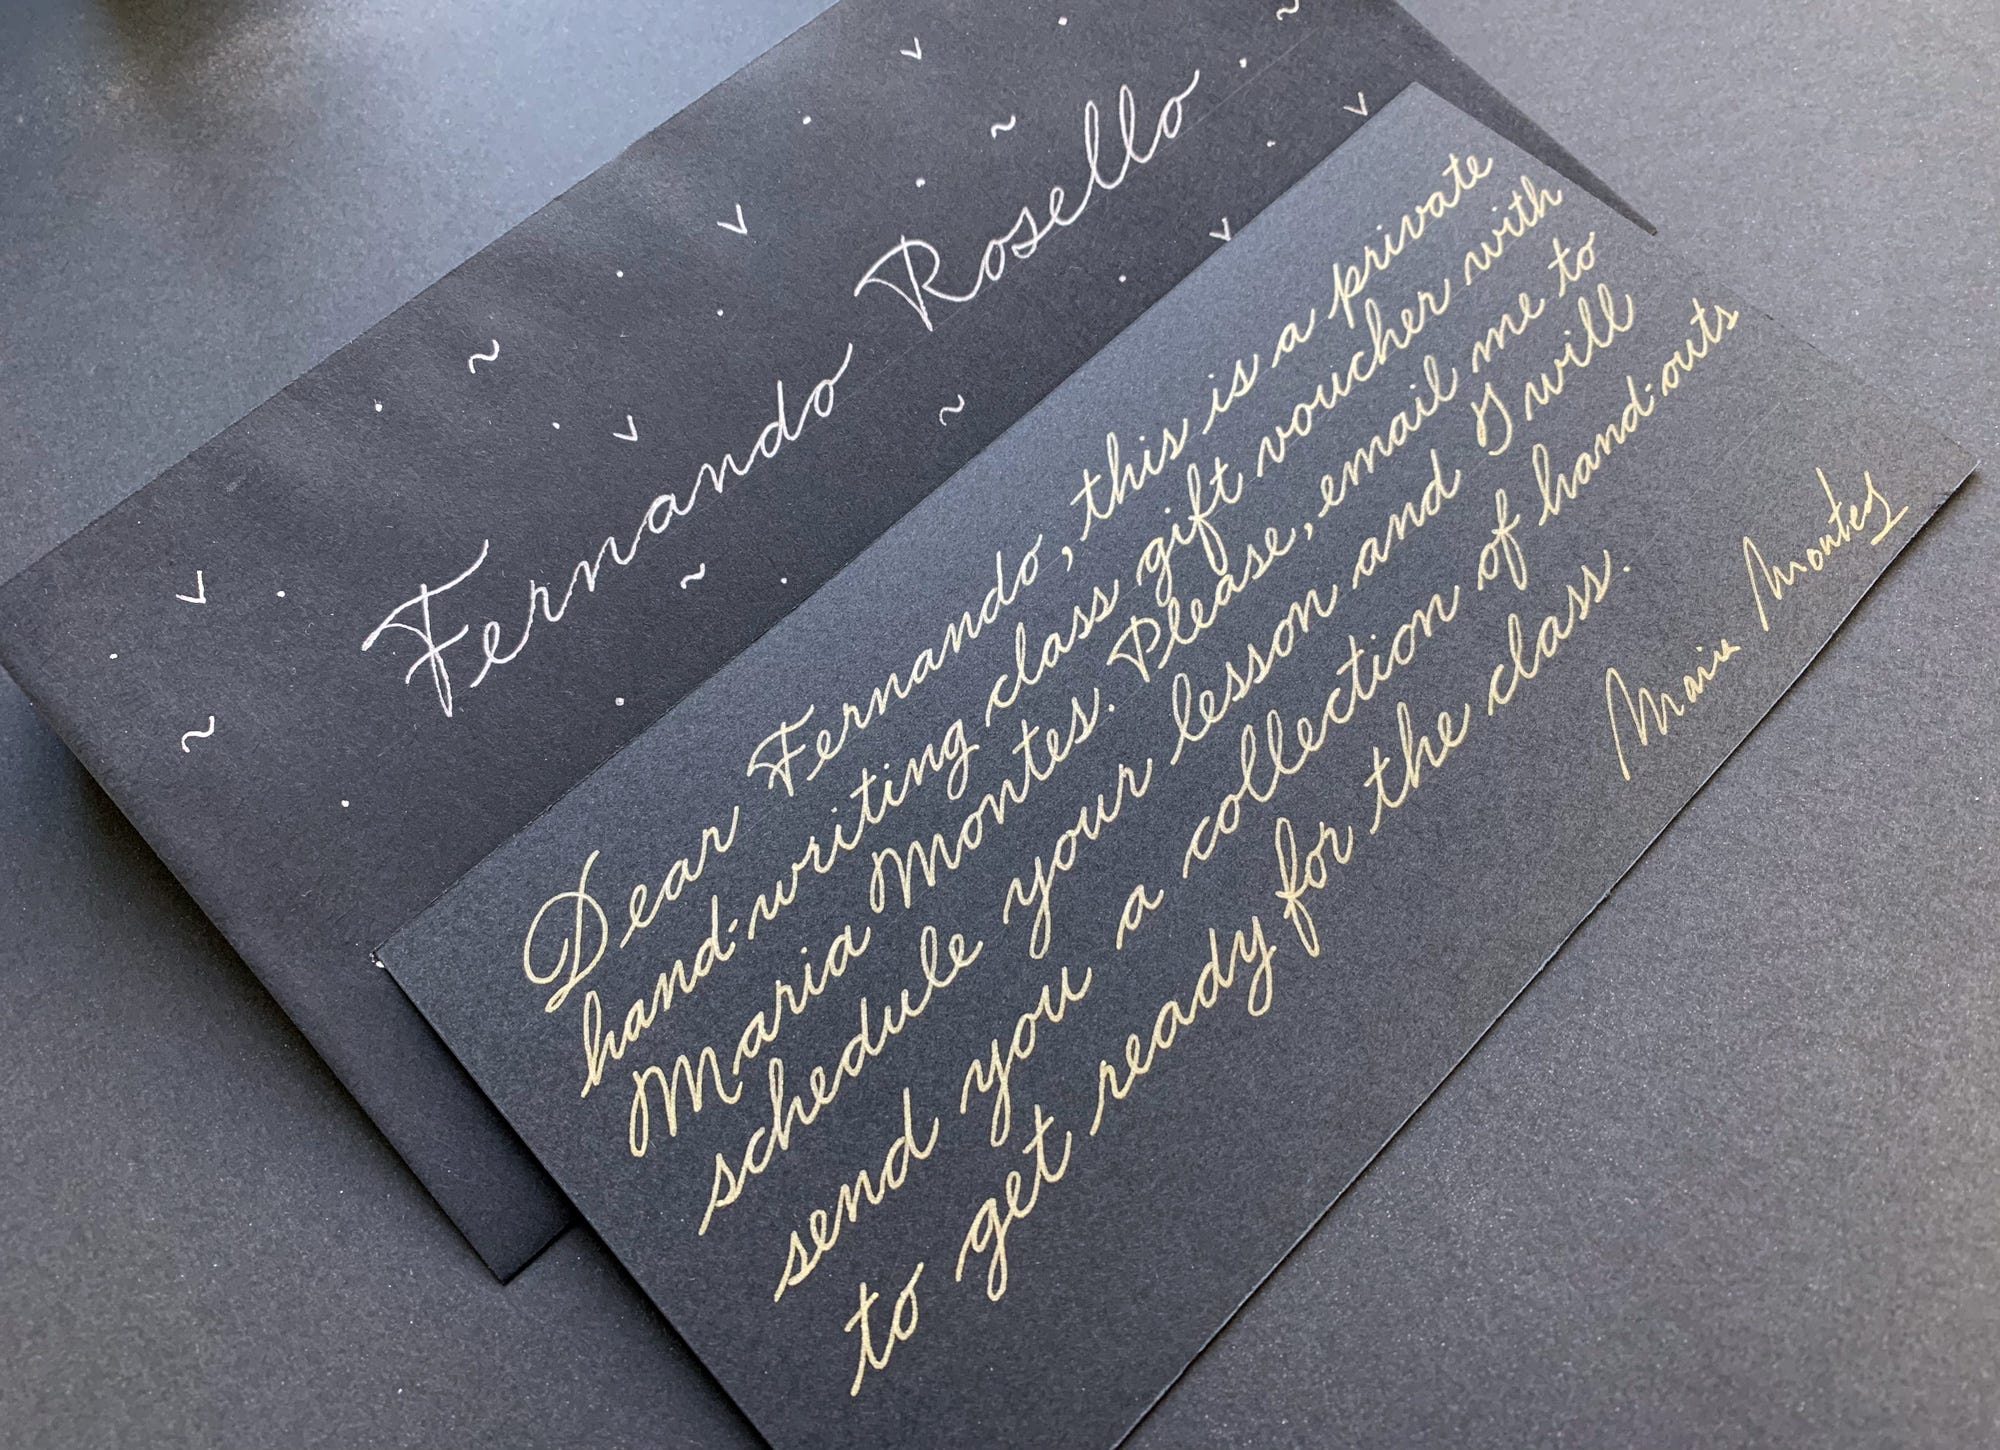 Fernando Rosello
Dear Fernando, this is a private
hand-writing class gift voucher with
Maria Montes. Please, email me to
schedule your lesson and I will
send you a collection of hand-outs
to get ready for the class.
Maria Montes